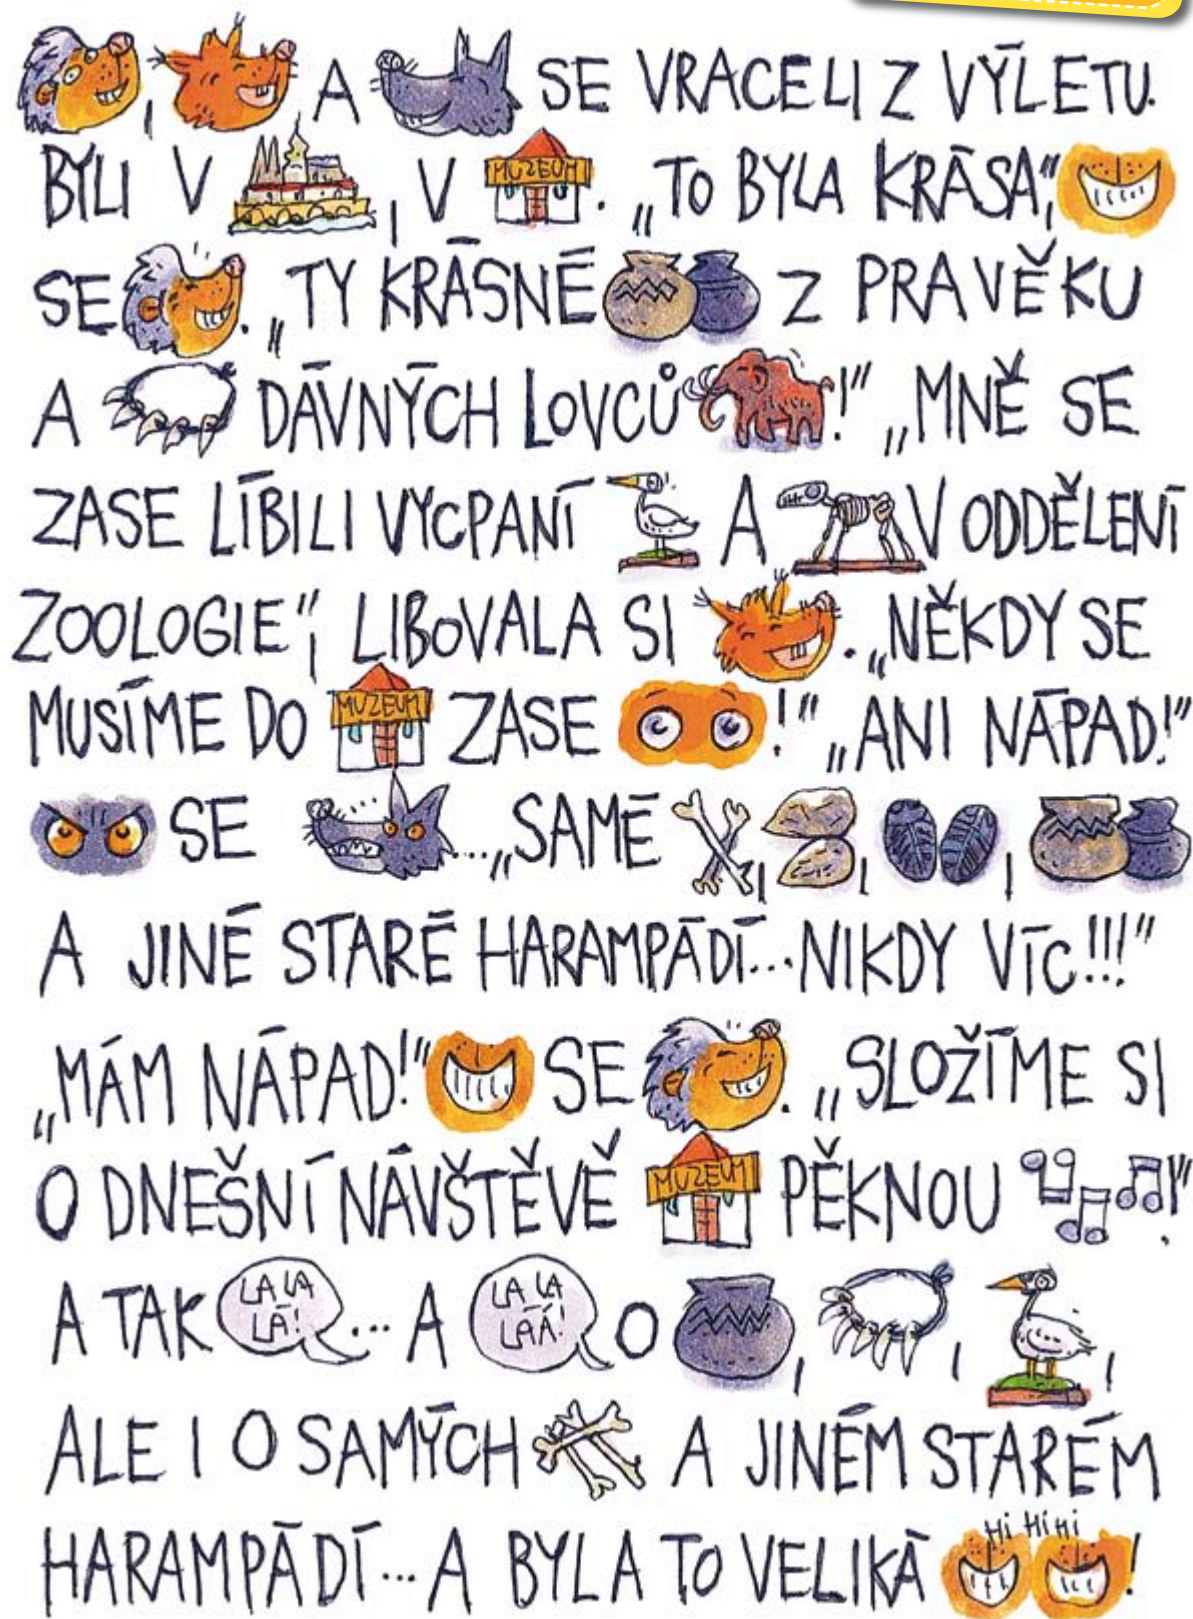 , A SE VRACELI Z VÝLETU.
BYLI V , V MUZEUM. „TO BYLA KRÁSA,"
SE . „TY KRÁSNÉ Z PRAVĚKU
A DÁVNÝCH LOVCŮ !" „MNĚ SE
ZASE LÍBILI VYCPANÍ A V ODDĚLENÍ
ZOOLOGIE", LIBOVALA SI . „NĚKDY SE
MUSÍME DO MUZEUM ZASE !" „ANI NÁPAD!"
SE ... „SAMÉ , , ,
A JINÉ STARÉ HARAMPÁDÍ... NIKDY VÍC!!!"
„MÁM NÁPAD!" SE . „SLOŽÍME SI
O DNEŠNÍ NÁVŠTĚVĚ MUZEUM PĚKNOU !"
A TAK LA LA LÁ! ... A LA LA LAÁ! O , , ,
ALE I O SAMÝCH A JINÉM STARÉM
HARAMPÁDÍ... A BYLA TO VELIKÁ HI HI HI !